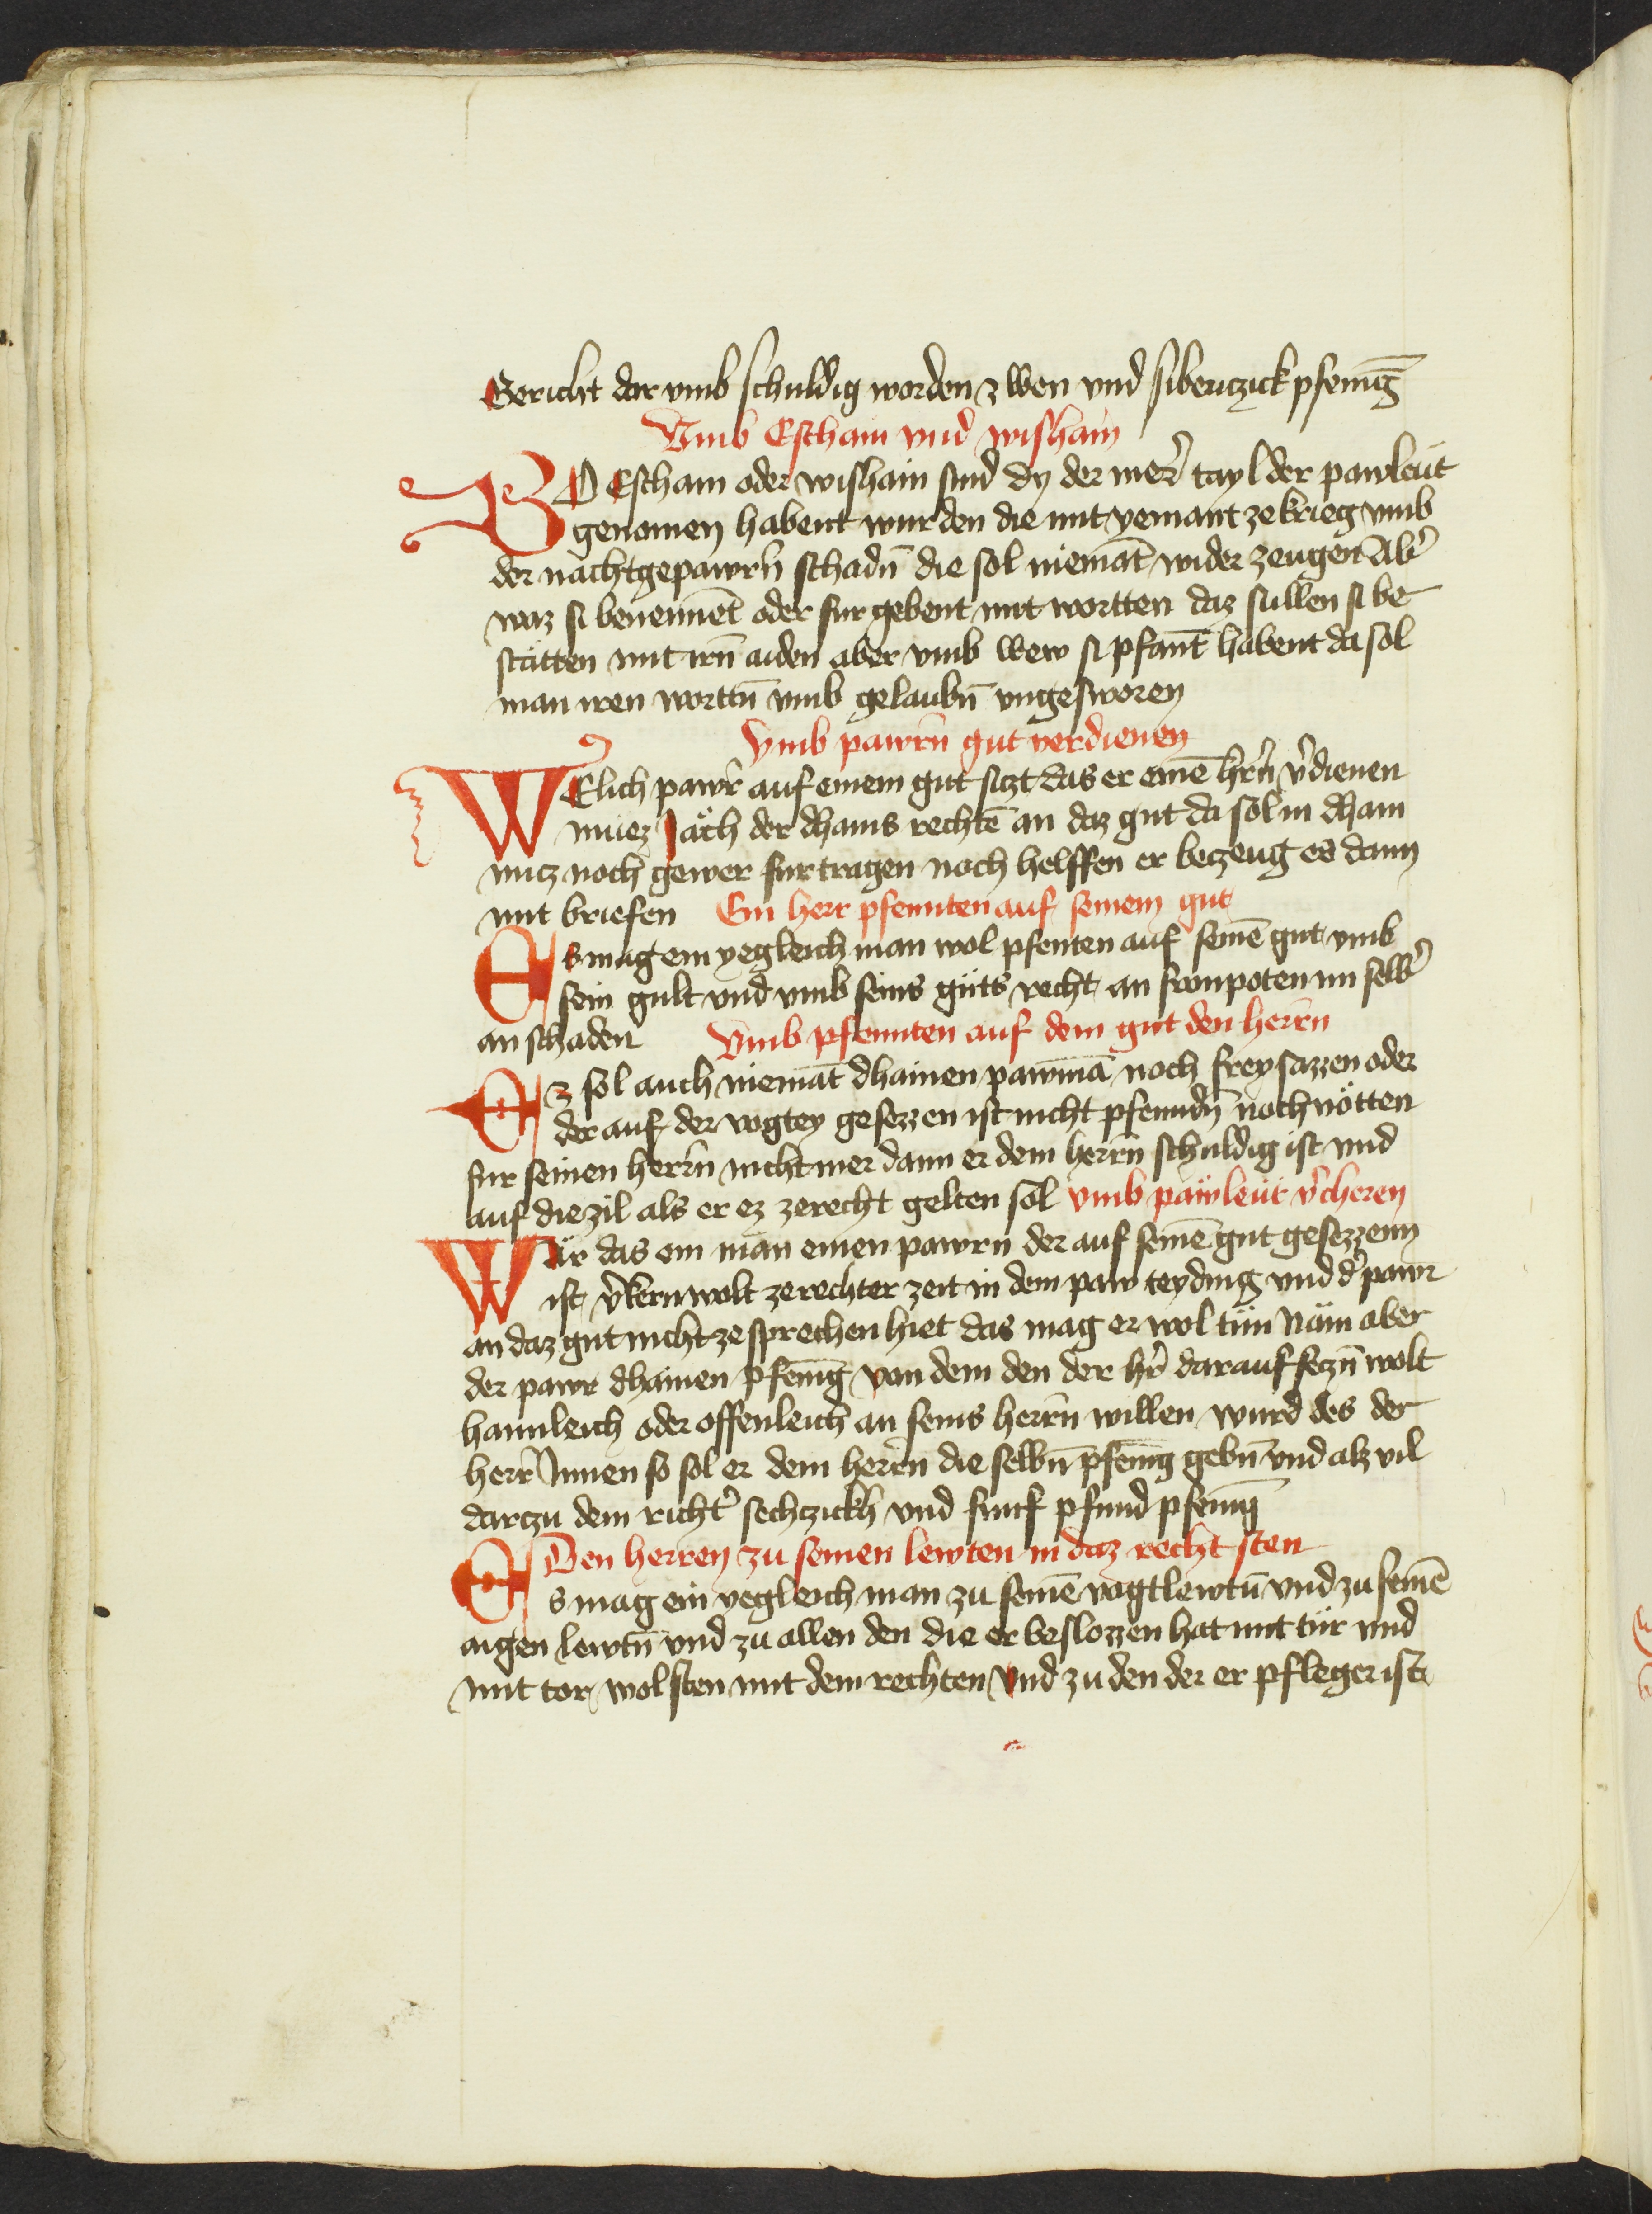 Gericht dar vmb schuldig worden zwen vnd sibenczick pfenīg
Vmb Eschain vnd wishain
WO Eschain oder wishain sind dy der mer̉ tayl der pawleut
genomen habent wurden die mit yemant ze krieg vmb
der nachtgepawrn̄ schadn̄ die sol niemāt wider zeugen Ab̉
waz si benennēt oder fur gebent mit wortten daz sullen si be
stätten mit irn̄ aiden aber vmb wew si pfant̄ habent da sol
man iren wortn̄ vmb gelaubn̄ vngesworen
Vmb pawrn̄ gut verdienen
WElich pawr̉ auf einem gut siczt das er einē hr̉n v̉dienen
muez Jäch der dhains rechtē an daz gut da sol in dhain
nucz noch gewer fur tragen noch helffen er beczeug es dann
mit briefen Ein herr pfennten auf seinem gut
Es mag ein yegleich man wol pfenten auf seinē gut vmb
sein gult vnd vmb seins gŭts recht an fronpoten im selb̉
an schaden Vmb pfennten auf dem gut den herrn
Ez sol auch niemāt dhainen pawmā noch freysazzen oder
der auf der vogtey gesezzen ist nicht pfenndn̄ noch nötten
fur seinen herrn nicht mer dann er dem herrn schuldig ist vnd
auf die zil als er ez zerecht gelten sol vmb päwleüt v̉cheren
Wär das ein man einen pawrn der auf seinē gut gesezzenn
ist v̉kern wolt ze rechter zeit in dem paw teyding vnd d̉ pawr
an daz gut nicht ze sprechen hiet das mag er wol tün Näm aber
der pawr dhainen pfenīg von dem den der hr̉ darauf seczn̄ wolt
haimleich oder offenleich an seins herrn willen wurd des der
herr Innen so sol er dem herrn die selbn̄ pfenīg gebn̄ vnd alz vil
darczu dem richt̉ sechczickh vnd funf pfund pfenīg
Den herren zu seinen lewten in daz recht sten
Es mag ein yegleich man zu seinē vogtlewtn̄ vnd zu seinē
aigen lewtn̄ vnd zu allen den die er beslozzen hat mit tür vnd
mit tor wol sten mit dem rechten vnd zu den der er pfleger ist